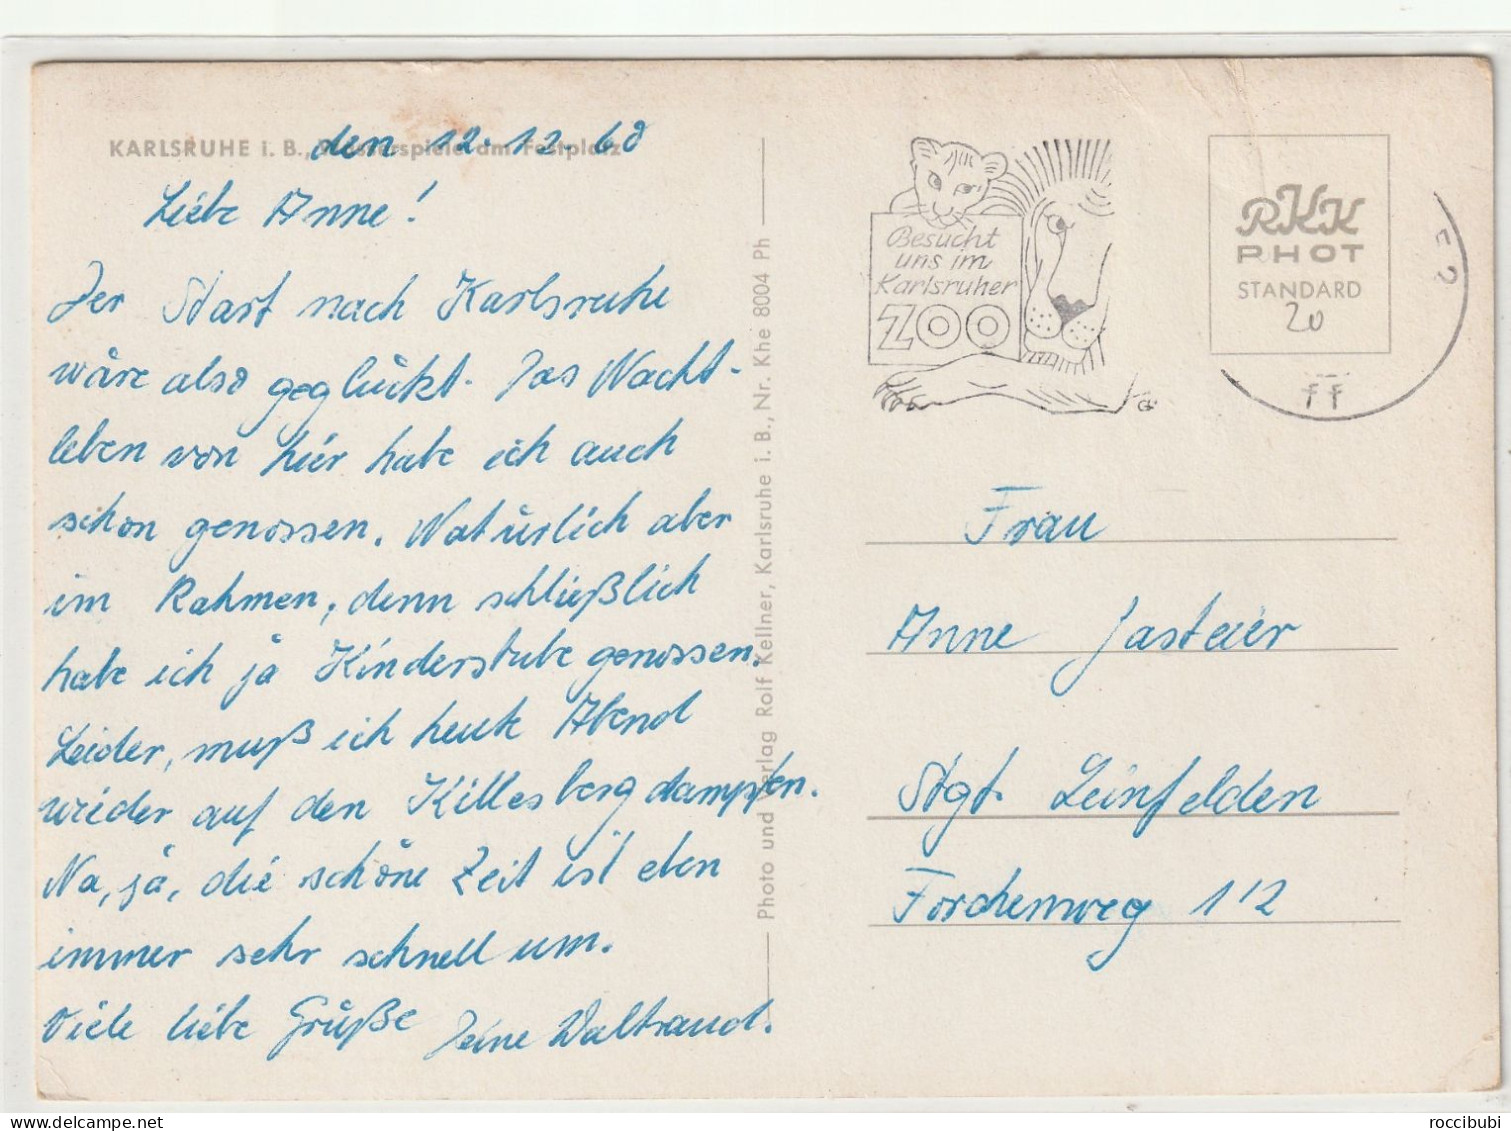 KARLSRUHE i. B., Wasserspiele am Festplatz
den 12.12.60
Liebe Anne!
Der Start nach Karlsruhe
wäre also geglückt. Das Nacht-
leben von hier habe ich auch
schon genossen. Natürlich aber
im Rahmen, denn schließlich
habe ich ja Kinderstube genossen.
Leider, muß ich heute Abend
wieder auf den Killesberg dampfen.
Na, ja, die schöne Zeit ist eben
immer sehr schnell um.
Viele liebe Grüße Deine Waltraud.
Photo und Verlag Rolf Kellner, Karlsruhe i. B., Nr. Khe 8004 Ph
Besucht
uns im
Karlsruher
ZOO
RKK
PHOT
STANDARD
20
Frau
Anne Jasteier
Stgt. Leinfelden
Forchenweg 12
roccibubi